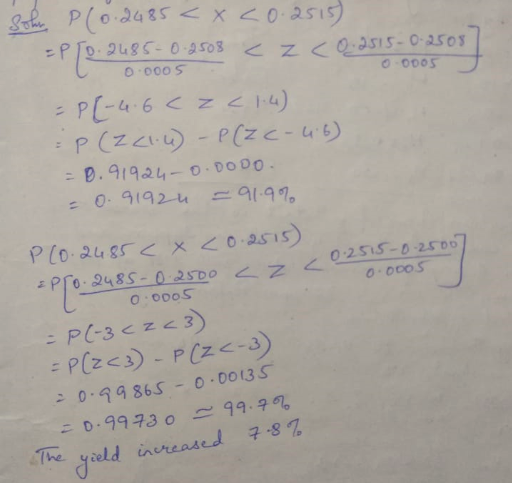 Soln P(0.2485 < x < 0.2515)
= P[0.2485-0.2508/0.0005 < Z < 0.2515-0.2508/0.0005]
= P[-4.6 < Z < 1.4)
= P(Z<1.4) - P(Z<-4.6)
= 0.91924 - 0.0000.
= 0.91924 ≃ 91.9%
P(0.2485 < x < 0.2515)
= P[0.2485-0.2500/0.0005 < Z < 0.2515-0.2500/0.0005]
= P(-3 < Z < 3)
= P(Z<3) - P(Z<-3)
= 0.99865 - 0.00135
= 0.99730 ≃ 99.7%
The yield increased 7.8%